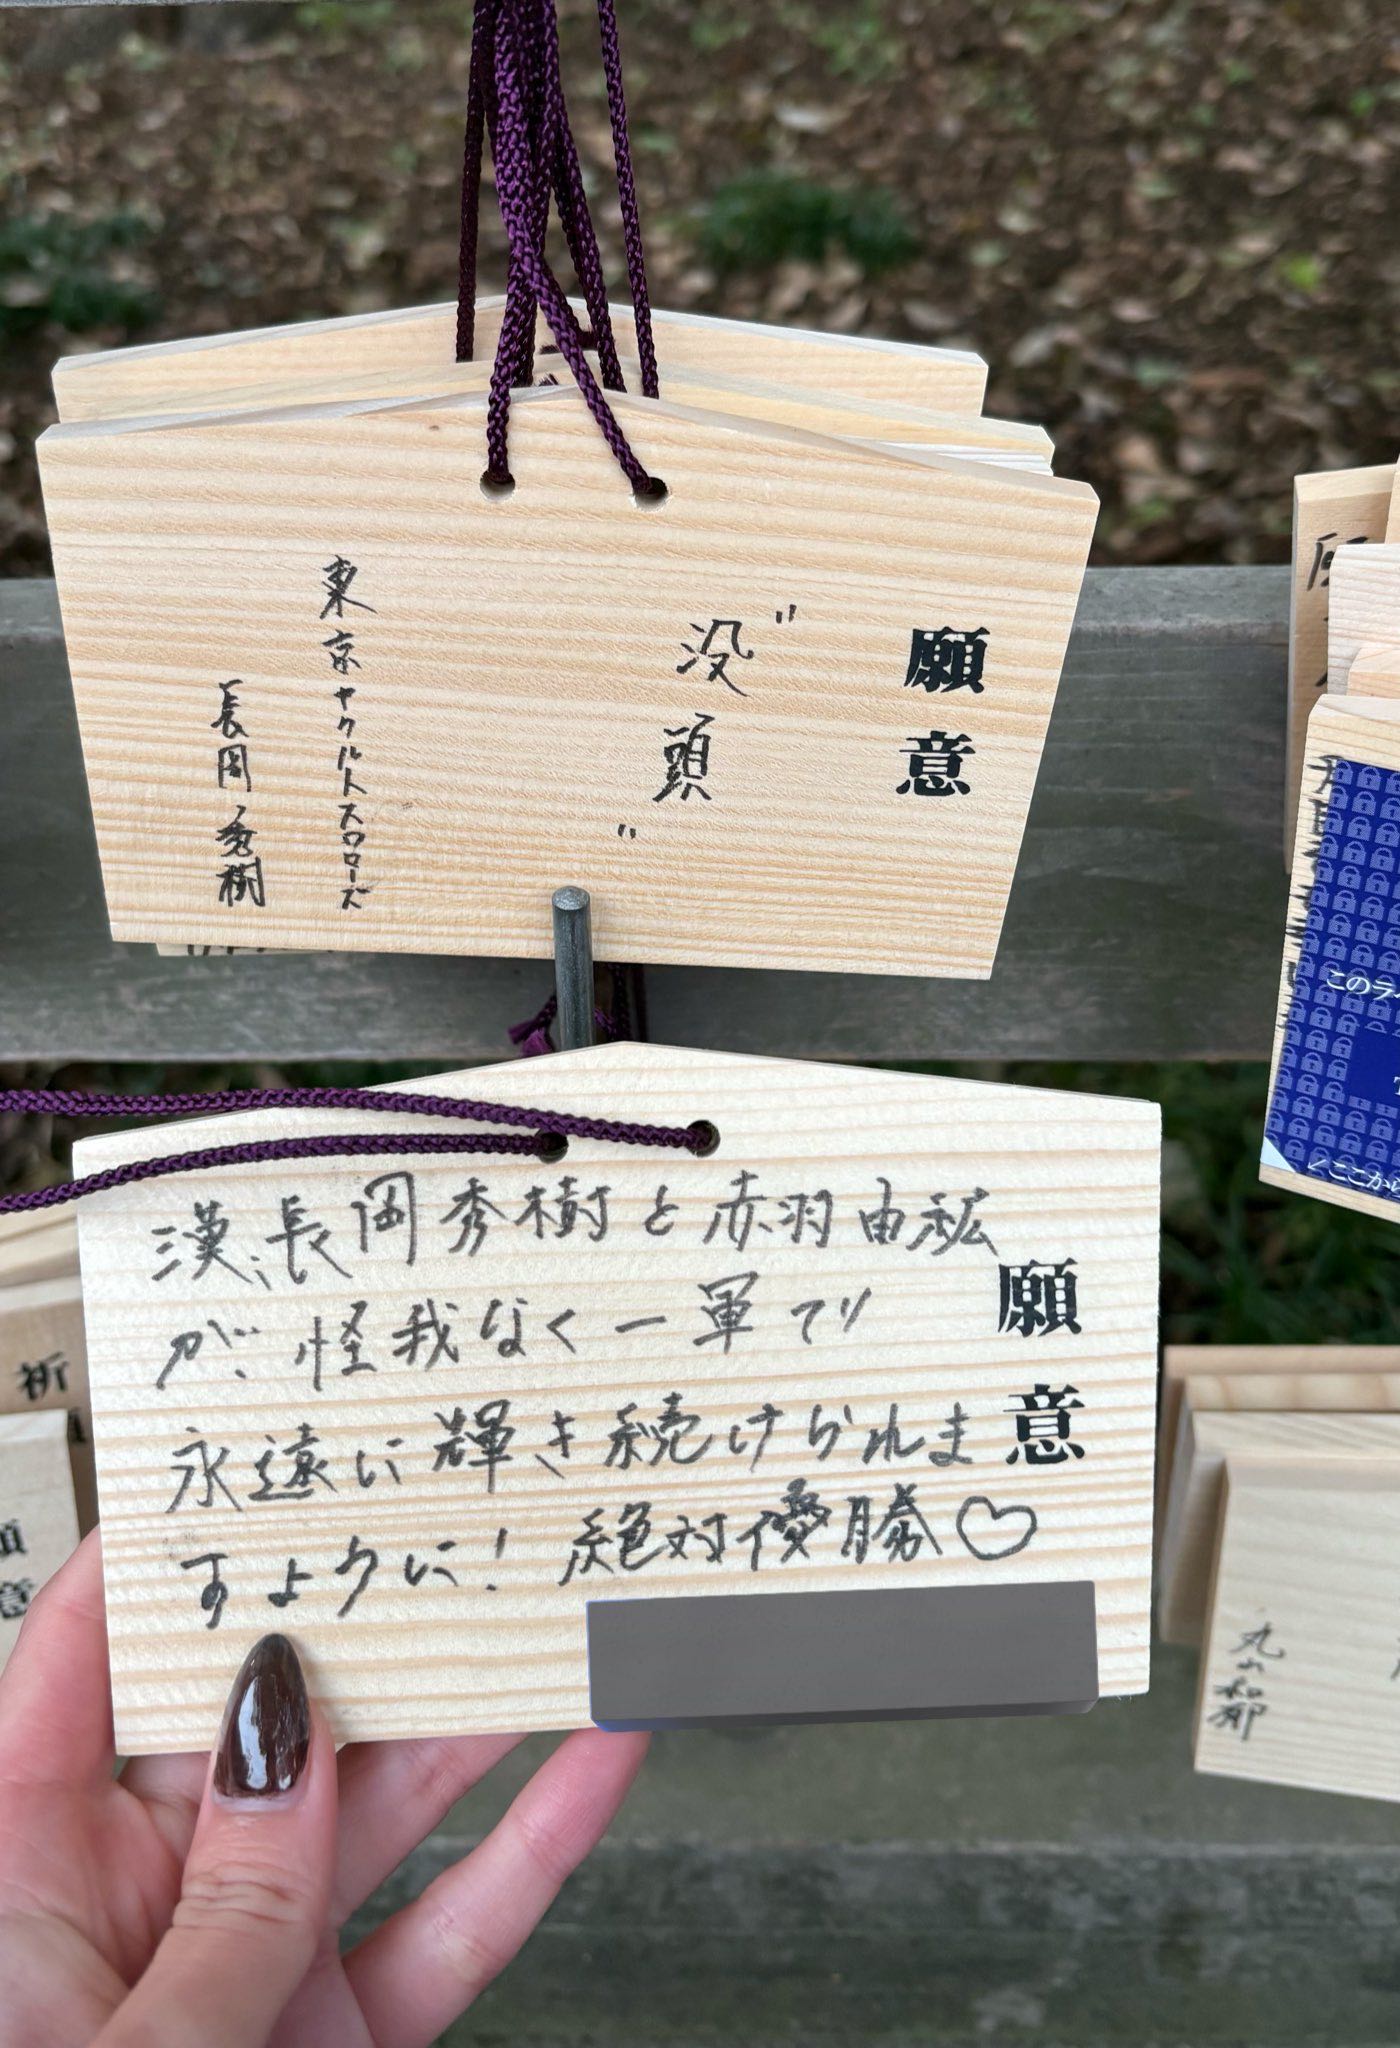 願意
"没頭"
東京ヤクルトスワローズ
長岡秀樹
漢、長岡秀樹と赤羽由紘
が、怪我なく一軍で
永遠に輝き続けられま
すように！絶対優勝♡
願意
祈
願意
このラ
ここから
丸山和郁